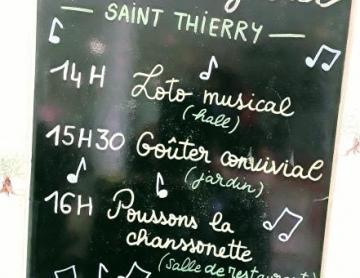 — SAINT THIERRY —
14H Loto musical
(hall)
15H30 Goûter convivial
(jardin)
16H Poussons la
chanssonette
(salle de restaurant)